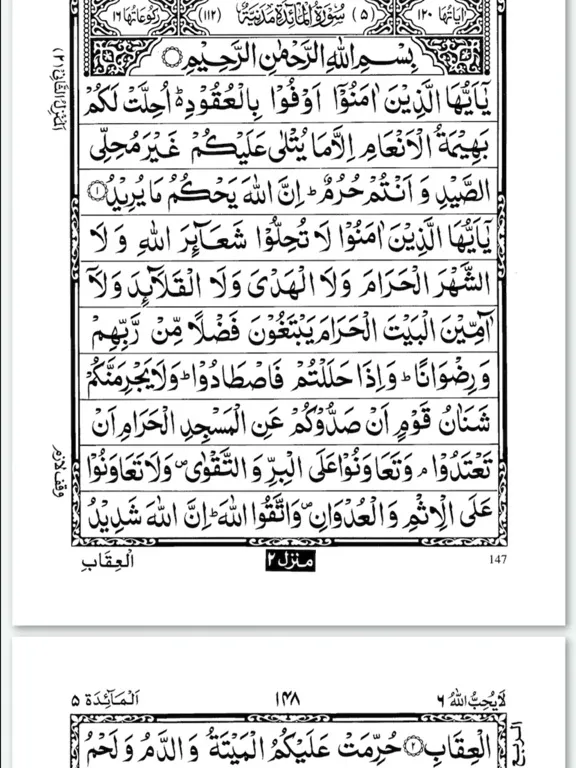 اٰيَاتُهَا ١٢٠ (٥) سُوْرَةُ الْمَآئِدَةِ مَدَنِيَّةٌ (١١٢) رُكُوْعَاتُهَا ١٦
بِسْمِ اللّٰهِ الرَّحْمٰنِ الرَّحِيْمِ
يٰۤاَيُّهَا الَّذِيْنَ اٰمَنُوْۤا اَوْفُوْا بِالْعُقُوْدِ ؕ اُحِلَّتْ لَكُمْ
بَهِيْمَةُ الْاَنْعَامِ اِلَّا مَا يُتْلٰى عَلَيْكُمْ غَيْرَ مُحِلِّى
الصَّيْدِ وَ اَنْتُمْ حُرُمٌ ؕ اِنَّ اللّٰهَ يَحْكُمُ مَا يُرِيْدُ ۝١
يٰۤاَيُّهَا الَّذِيْنَ اٰمَنُوْا لَا تُحِلُّوْا شَعَآئِرَ اللّٰهِ وَ لَا
الشَّهْرَ الْحَرَامَ وَلَا الْهَدْىَ وَلَا الْقَلَآئِدَ وَلَاۤ
آٰمِّيْنَ الْبَيْتَ الْحَرَامَ يَبْتَغُوْنَ فَضْلًا مِّنْ رَّبِّهِمْ
وَ رِضْوَانًا ؕ وَاِذَا حَلَلْتُمْ فَاصْطَادُوْا ؕ وَلَا يَجْرِمَنَّكُمْ
شَنَاٰنُ قَوْمٍ اَنْ صَدُّوْكُمْ عَنِ الْمَسْجِدِ الْحَرَامِ اَنْ
تَعْتَدُوْا ۘ وَتَعَاوَنُوْا عَلَى الْبِرِّ وَ التَّقْوٰى ۪ وَلَا تَعَاوَنُوْا
عَلَى الْاِثْمِ وَ الْعُدْوَانِ ۪ وَاتَّقُوا اللّٰهَ ؕ اِنَّ اللّٰهَ شَدِيْدُ
وقف لازم
147 منزل ٢ الْعِقَابِ
لَا يُحِبُّ اللّٰهُ ٦ ١٤٨ اَلْمَآئِدَة ٥
الْعِقَابِ ۝٢ حُرِّمَتْ عَلَيْكُمُ الْمَيْتَةُ وَ الدَّمُ وَ لَحْمُ